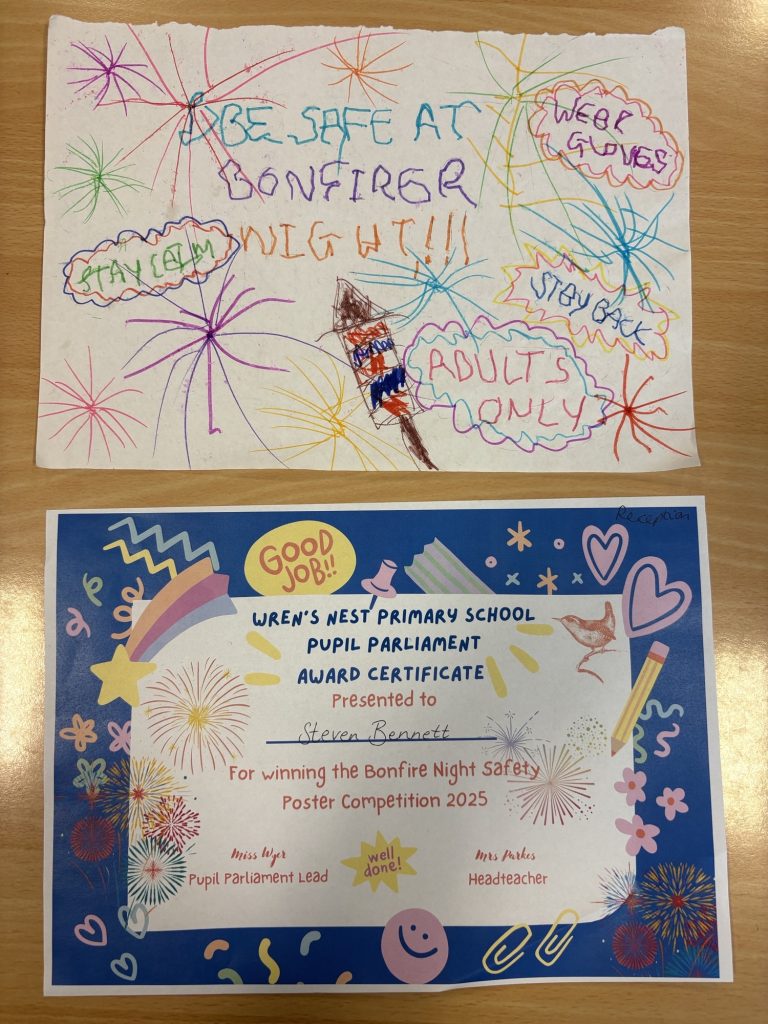 BE SAFE AT
BONFIRER
NIGHT!!!
WEAR
GLOVES
STAY CALM
STAY BACK
ADULTS
ONLY
Reception
GOOD
JOB!!
WREN'S NEST PRIMARY SCHOOL
PUPIL PARLIAMENT
AWARD CERTIFICATE
Presented to
Steven Bennett
For winning the Bonfire Night Safety
Poster Competition 2025
Miss Wyer
Pupil Parliament Lead
well
done!
Mrs Parkes
Headteacher